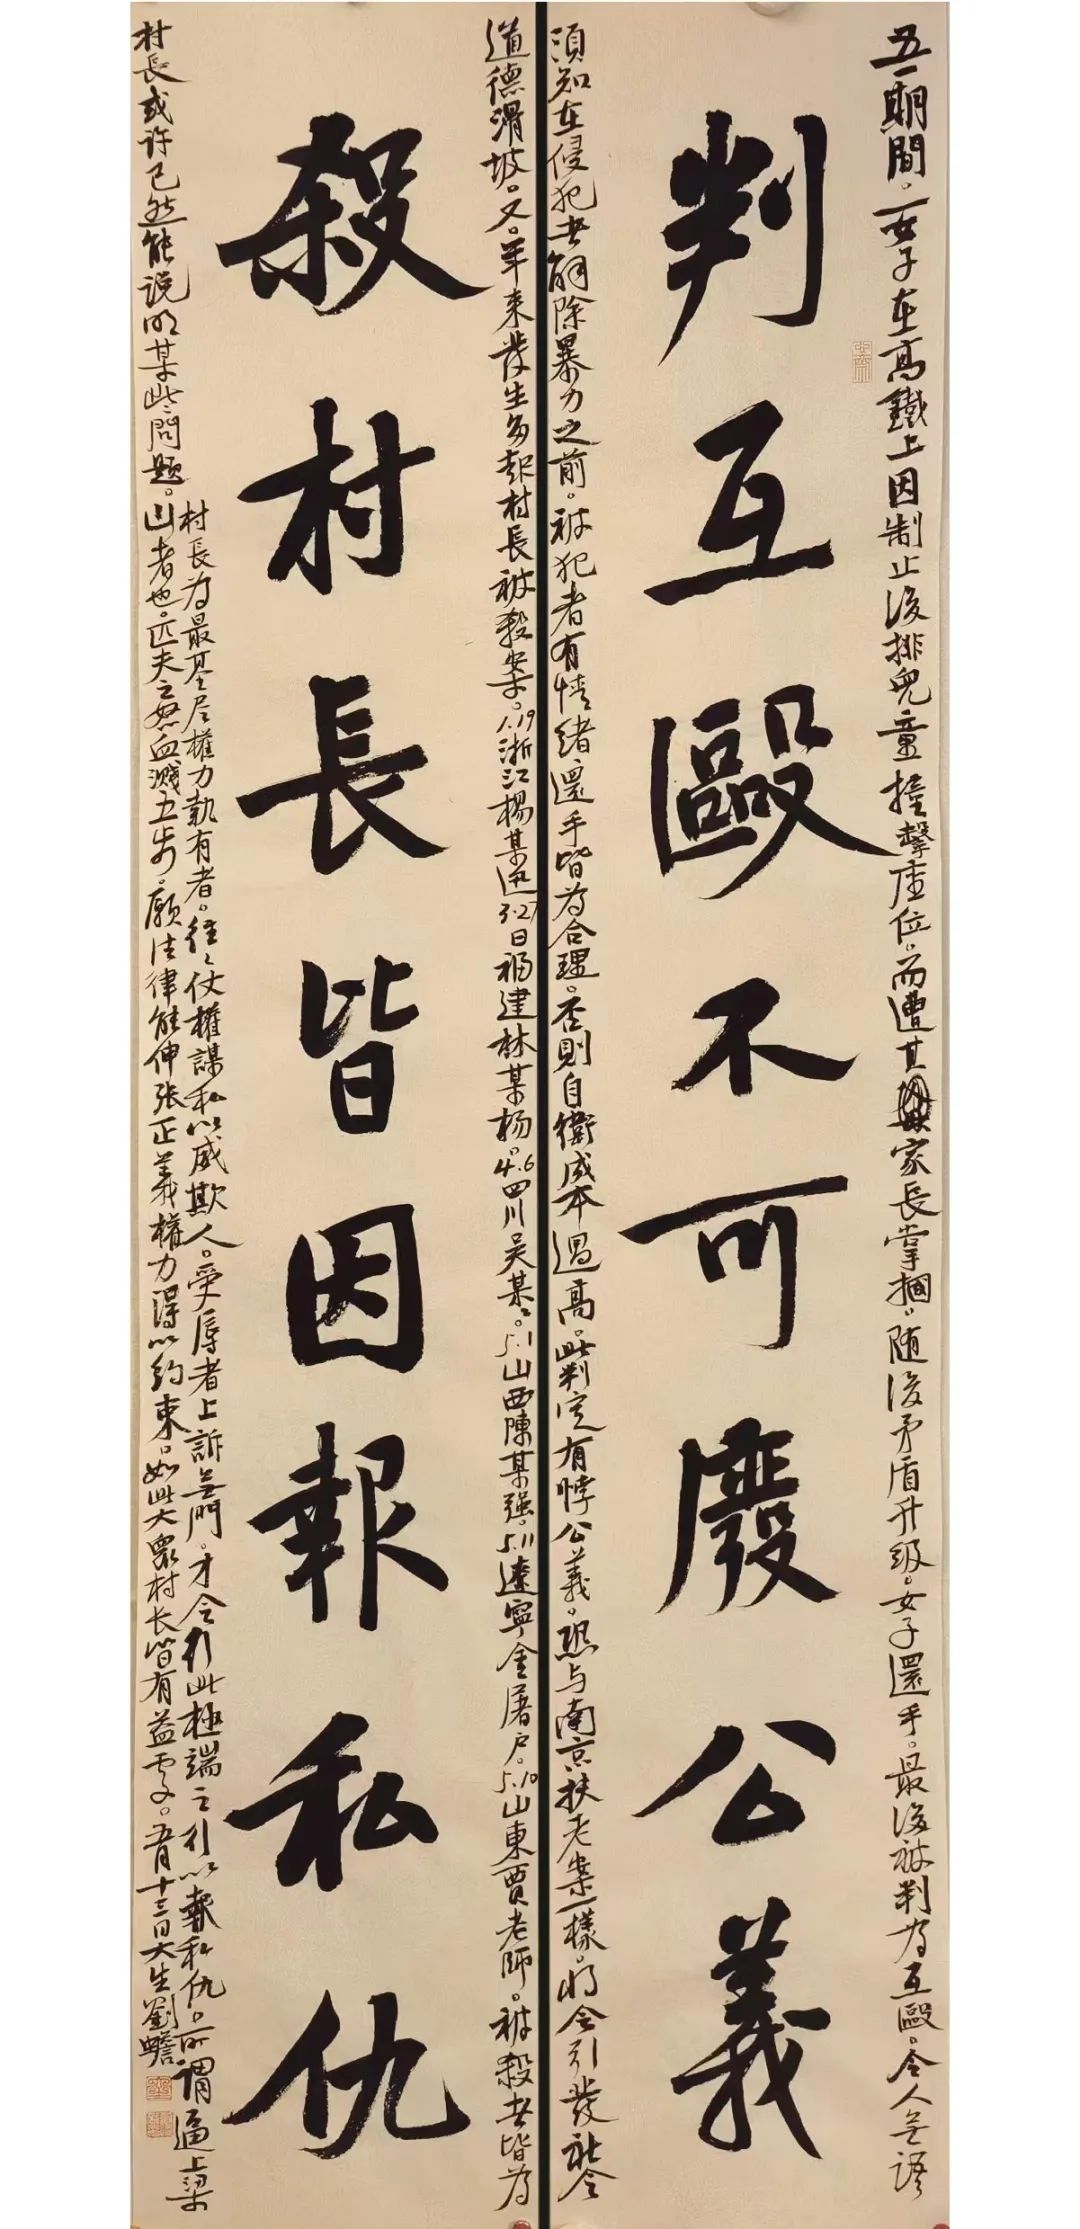 五一期間。一女子在高鐵上因制止後排兒童撞擊座位。而遭其家長掌摑。随後矛盾升级。女子還手。最後被判為互毆。令人無語
判互毆不可廢公義
須知在侵犯者解除暴力之前。被犯者有情緒還手皆為合理。否則自衛成本過高。此判定有悖公義。恐与南京扶老案一樣。将会引發社会
道德滑坡。又。年来發生多起村長被殺案。1.19浙江楊某迅3.27日福建林某杨。4.6四川吴某。5.1山西陳某强。5.11遼寧金屠户。5.10山東賈老師。被殺者皆為
殺村長皆因報私仇
村長為最基层權力執有者。往往仗權謀私以威欺人。受辱者上訴無門。才会行此極端之行以報私仇。所謂逼上梁
山者也。匹夫之怒血濺五步。願法律能伸张正義權力得以約束。如此大眾村长皆有益乎。五月十三日大生劉蟾
村長或许已然能说明某些問題。